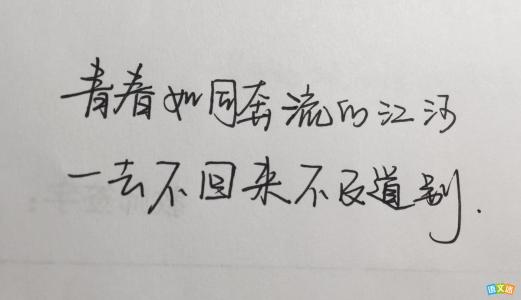 青春如同奔流的江河
一去不回来不及道别.
语文迷